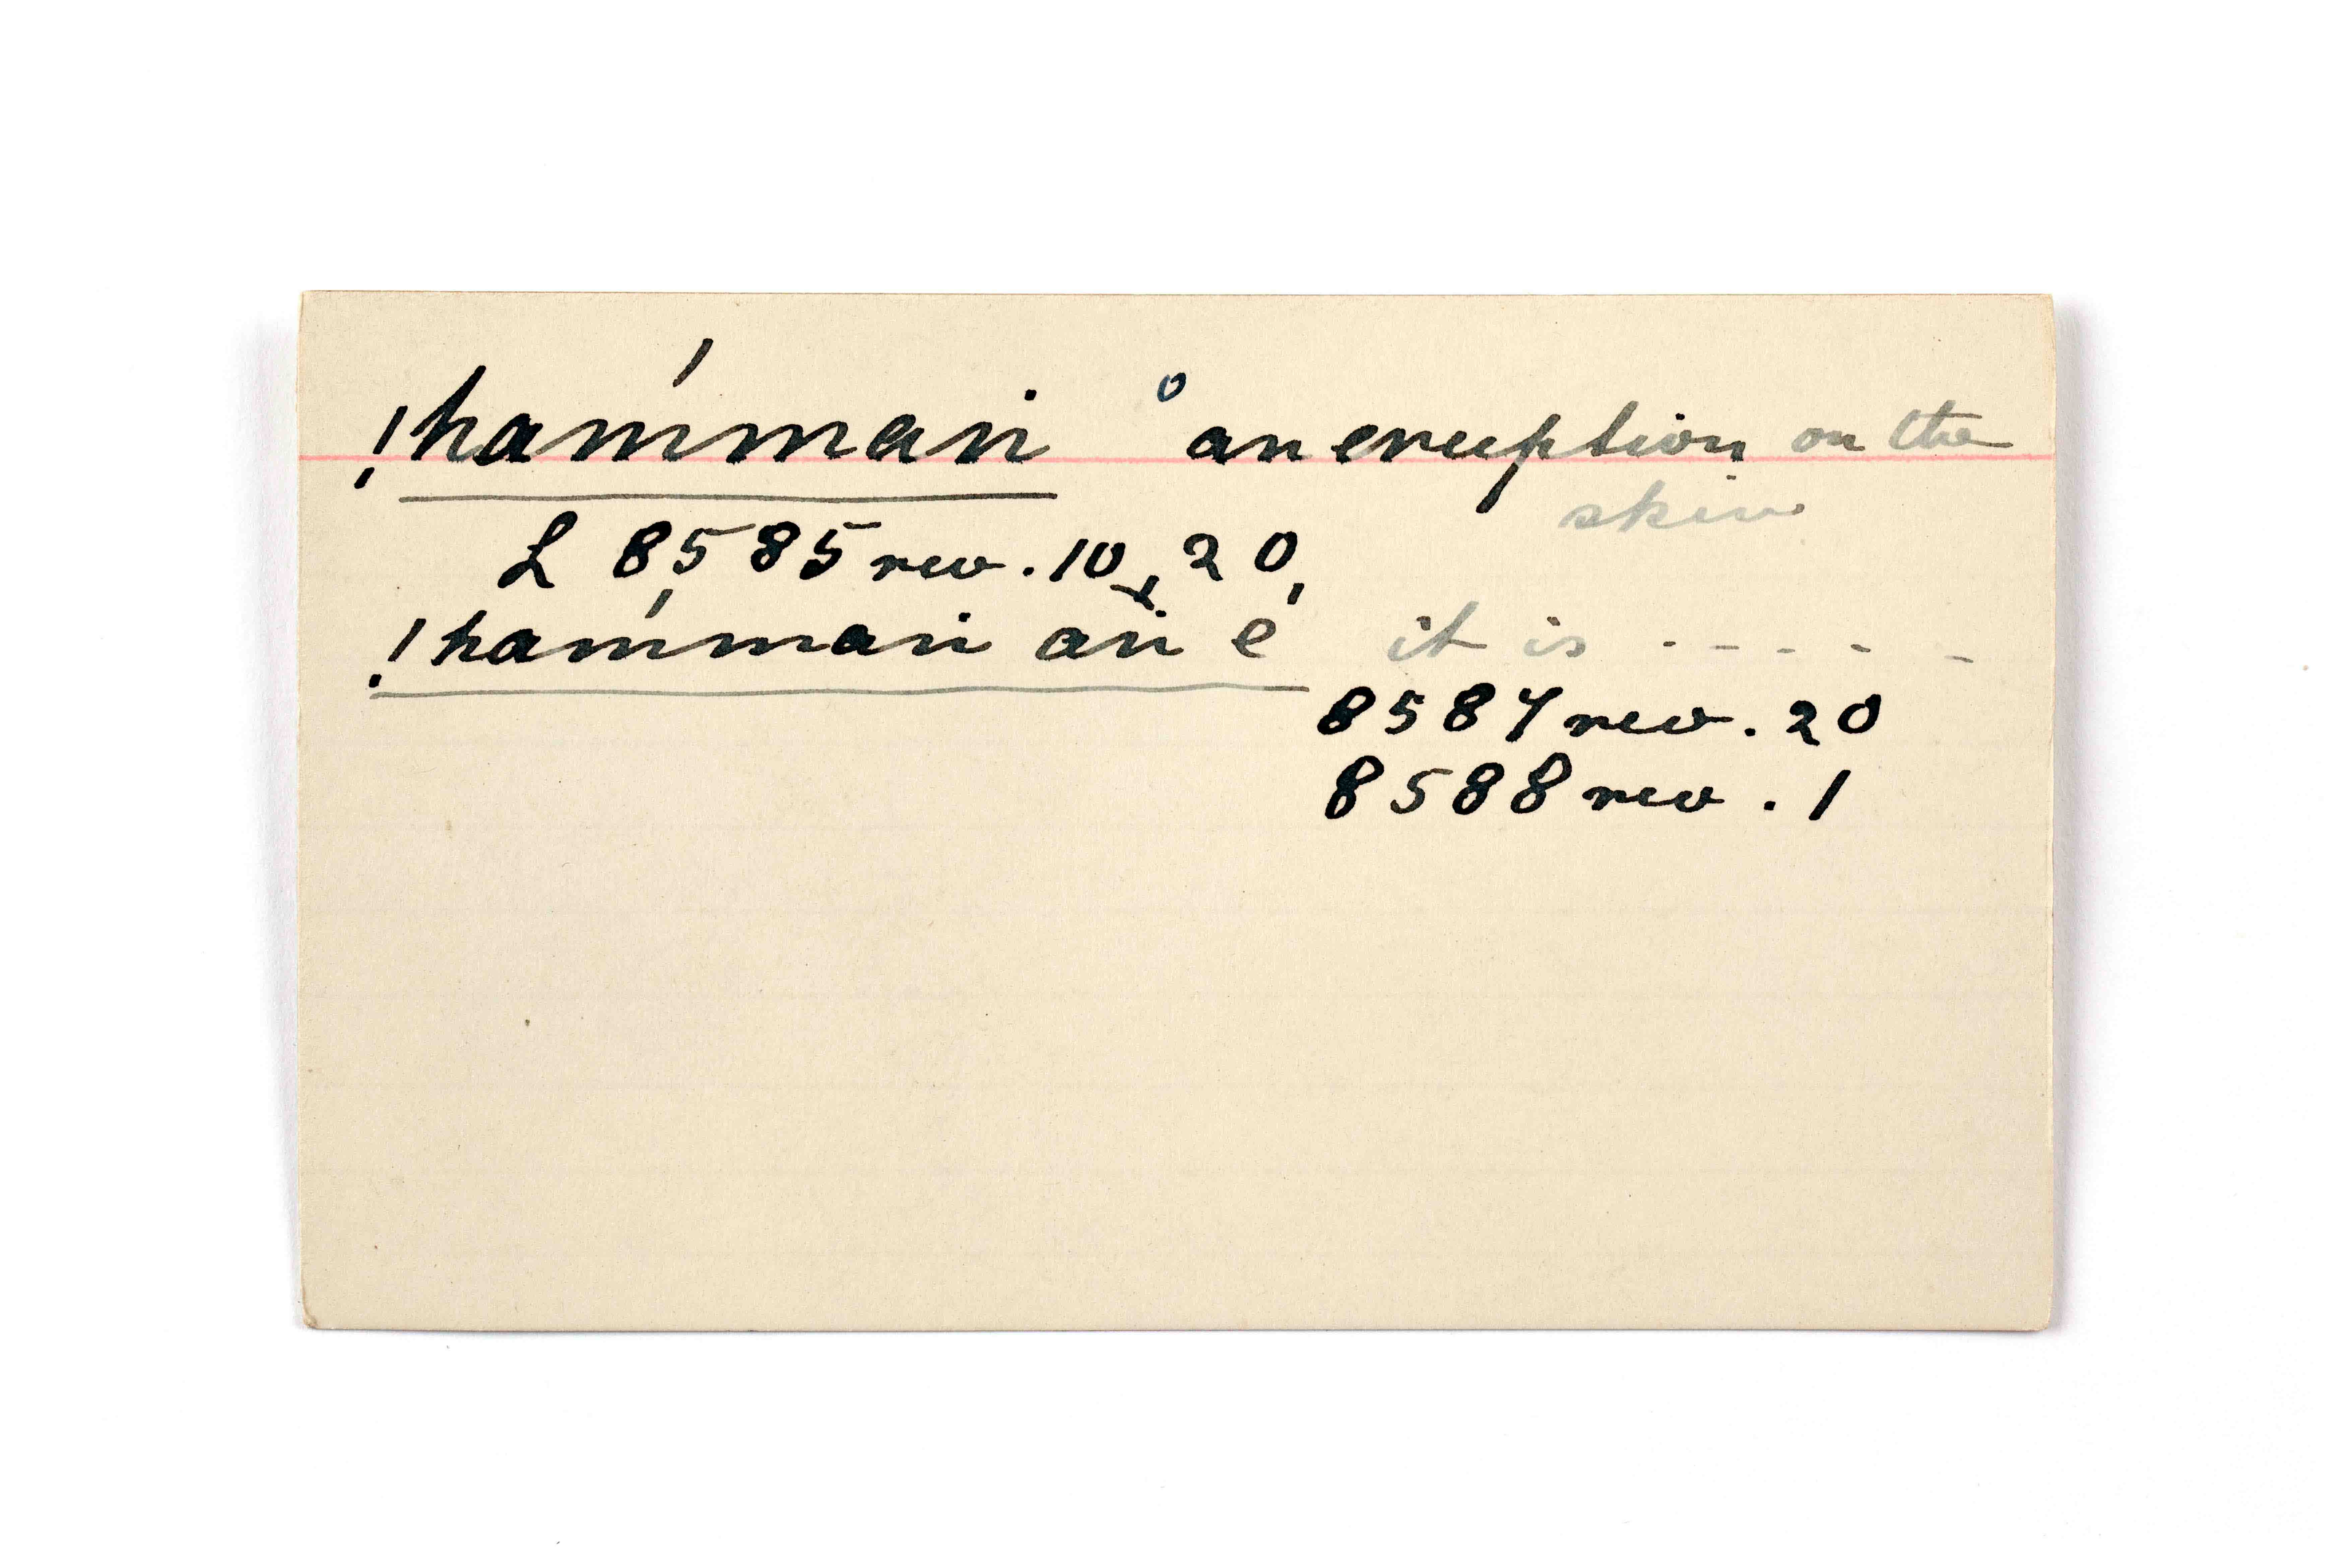 !hammañ ° an eruption on the
skin
L 8585 rev. 10, 20,
!hammañ añ e it is - - - - -
8587 rev. 20
8588 rev. 1